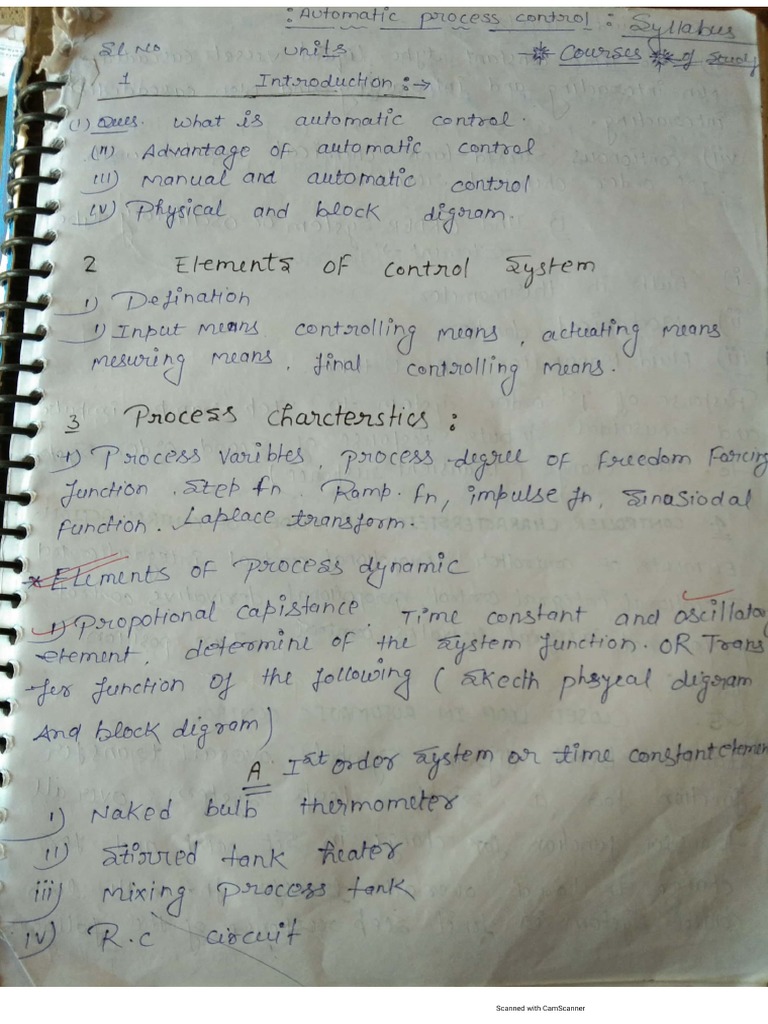 : Automatic process control : Syllabus
Sl. No units * Courses * of Study
1 Introduction : →
(i) Ques. What is automatic control.
(ii) Advantage of automatic control
iii) Manual and automatic control
iv) Physical and block digram.
2 Elements of control System
1) Defination
1) Input means controlling means, actuating means
mesuring means, final controlling means.
3 Process charcterstics :
1) Process varibles, process degree of freedom Forcing
function. Step fn. Ramp. fn, impulse fn, Sinasiodal
function. Laplace transform.
* Elements of process dynamic
1) Propotional capistance. Time constant and oscillatory
element, determine of the System function. OR Trans
fer function of the following (Skecth phsyeal digram
And block digram)
A Ist order System or time constant element
i) Naked bulb thermometer
ii) Stirred tank heater
iii) mixing process tank
iv) R.c circuit
Scanned with CamScanner